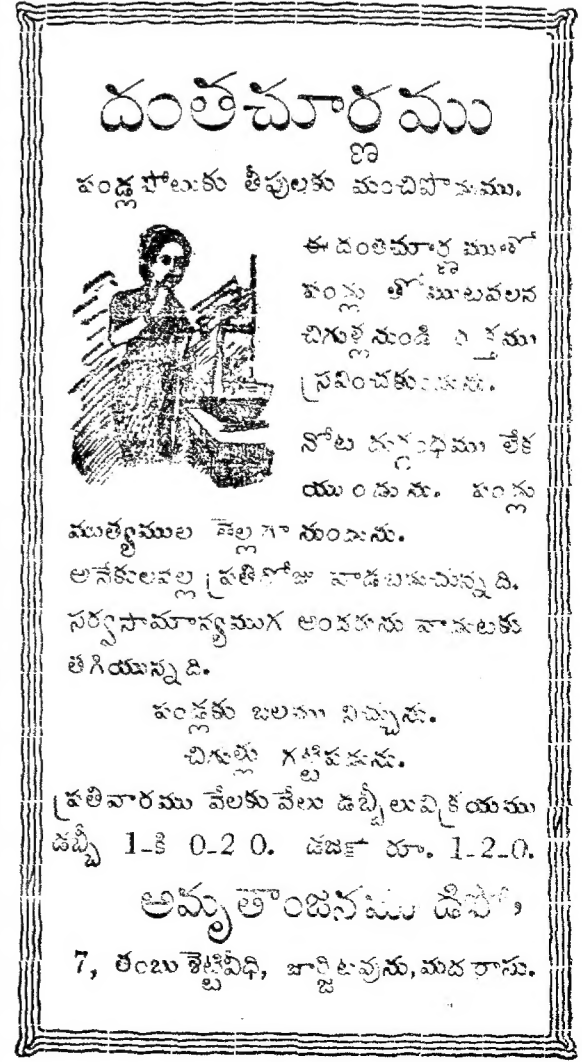 దంతచూర్ణము
పండ్లపోటుకు తీపులకు మంచిపొడుము.
ఈ దంతచూర్ణముతో
పండ్లు తోముటవలన
చిగుళ్లనుండి రక్తము
స్రవించకుండును.
నోట దుర్గంధము లేక
యుండును. పండ్లు
ముత్యముల తెల్లగా నుండును.
అనేకులవల్ల ప్రతిరోజు వాడబడుచున్నది.
సర్వసామాన్యముగ అందరును వాడుటకు
తగియున్నది.
పండ్లకు బలము నిచ్చును.
చిగుళ్లు గట్టిపడును.
ప్రతివారము వేలకువేలు డబ్బీలువిక్రయము
డబ్బీ 1-కి 0-2 0. డజను రూ. 1-2-0.
అమృతాంజనము డిపో,
7, తంబుశెట్టివీధి, జార్జిటవును, మదరాసు.